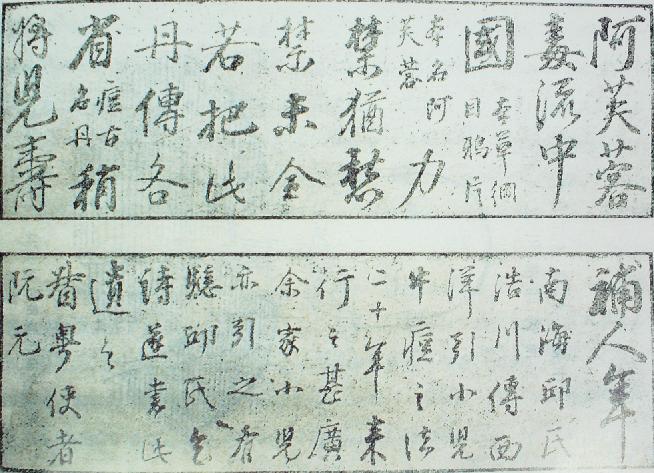 阿芙蓉
毒流中
國本草綱目鴉片
本名阿芙蓉力
禁猶愁
禁未全
若把此
丹傳各
省痘古名丹稍
將兒壽
補人年
南海邱氏
浩川傳西
洋引小兒
牛痘之法
二十年來
行之甚廣
余家小兒
亦引之有
驗邱氏乞
詩遂書此
遺之
督粵使者
阮元